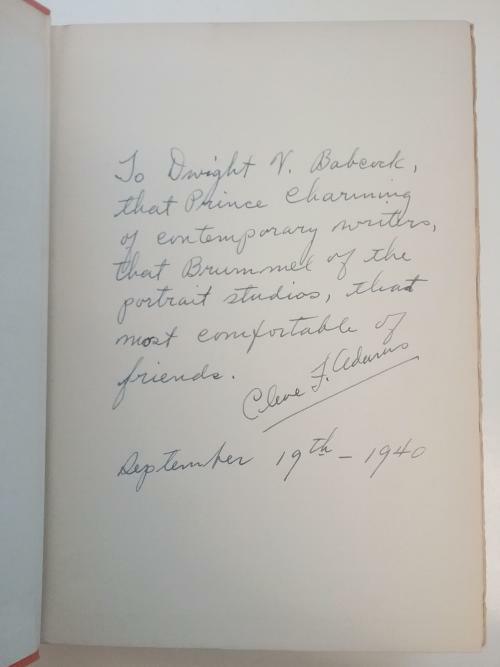 To Dwight V. Babcock,
that Prince Charming
of contemporary writers,
that Brummel of the
portrait studios, that
most comfortable of
friends.
Cleve F. Adams
September 19th - 1940